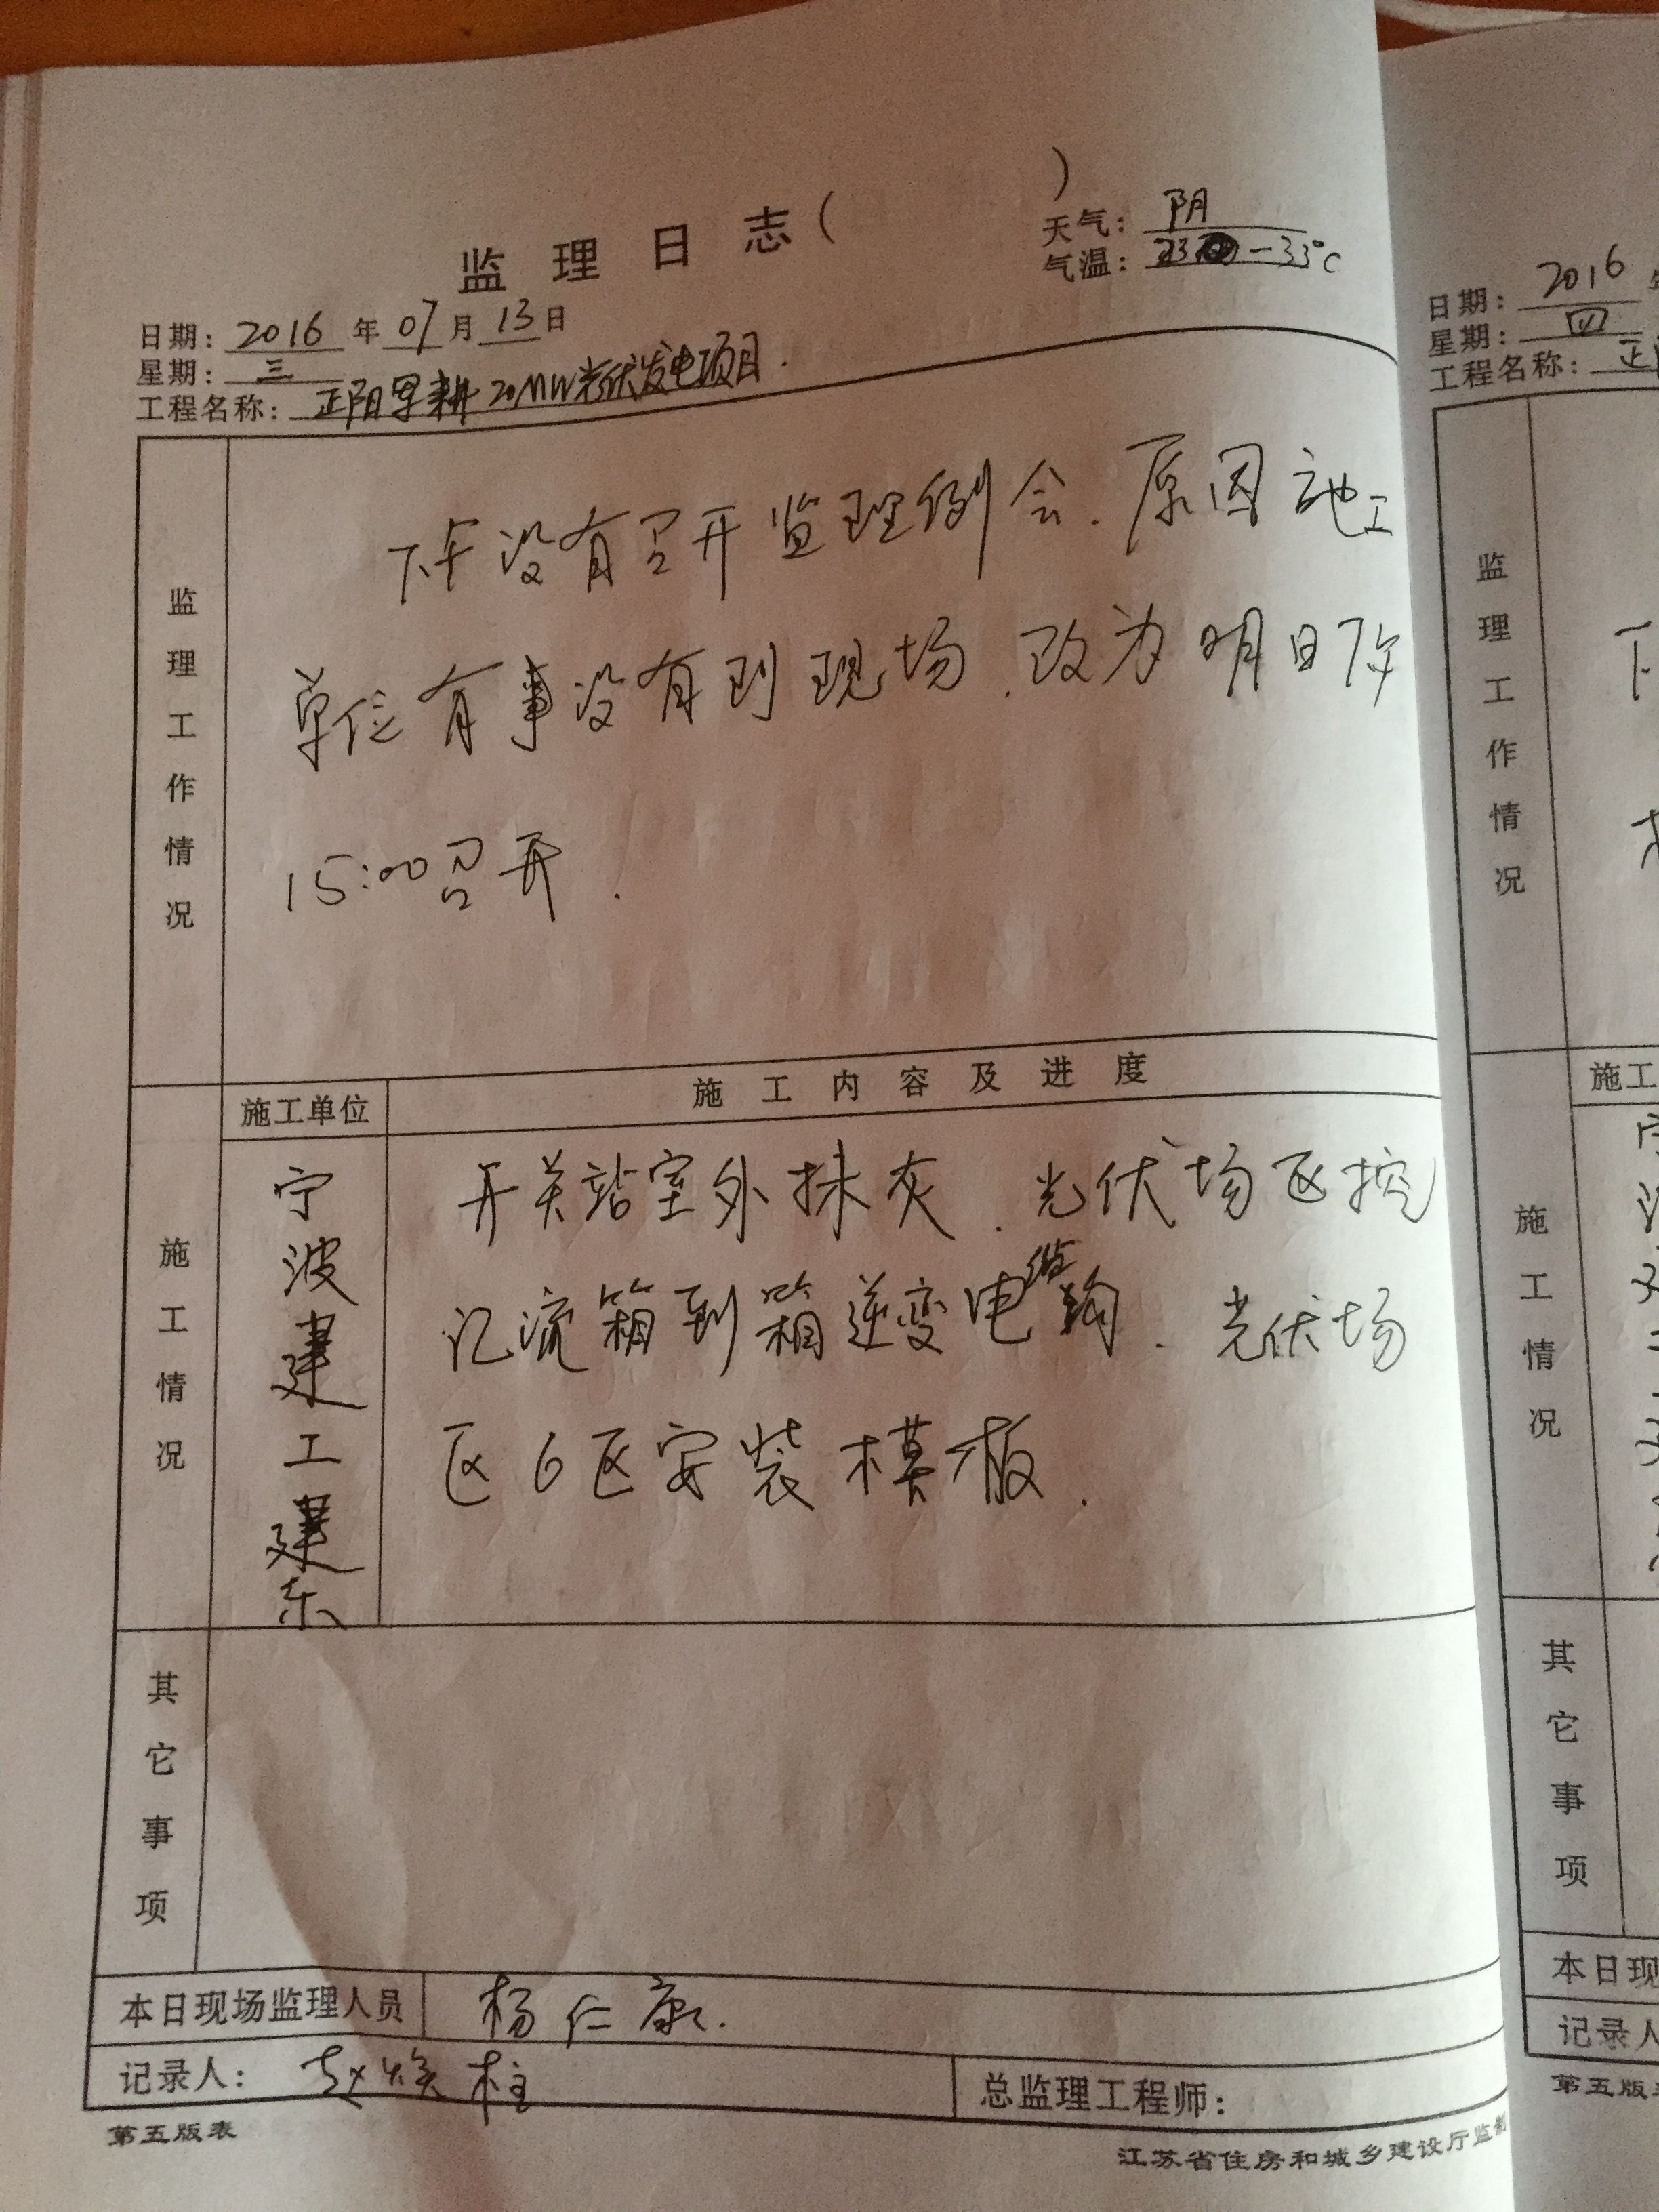 监理日志( )
天气：阴
气温：23 —33℃
日期：2016年07月13日
星期：三
工程名称：正阳早耕20MW光伏发电项目.
监理工作情况
下午没有召开监理例会.原因施工
单位有事没有到现场.改为明日下午
15:00召开.
施工情况
施工单位
施工内容及进度
宁波建工建东
开关站室外抹灰.光伏场区挖
汇流箱到箱逆变电缆沟.光伏场
区6区安装模板.
其它事项
本日现场监理人员 杨仁康.
记录人：赵焕柱
总监理工程师：
第五版表
江苏省住房和城乡建设厅监制
日期：2016
星期：四
工程名称：正
监理工作情况
下
施工情况
施工
宁
其它事项
本日现
记录人
第五版